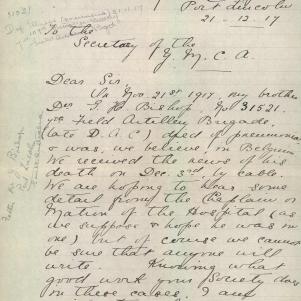 Port Lincoln
21-12-17
To the
Secretary of the
Y.M.C.A.
Dear Sir
On Nov. 21st 1917, my brother
Dvr G. H. Bishop, No 31521
Field Artillery Brigade,
(late D.A.C) died of pneumonia
& was, we believe, in Belgium
We received the news of his
death on Dec. 3rd by cable.
We are hoping to hear some
detail from the Chaplain or
Matron of the Hospital (as
we suppose & hope he was in
one) but of course we cannot
be sure that anyone will
write. Knowing what
good work your Society does
in these cases, I am
31521